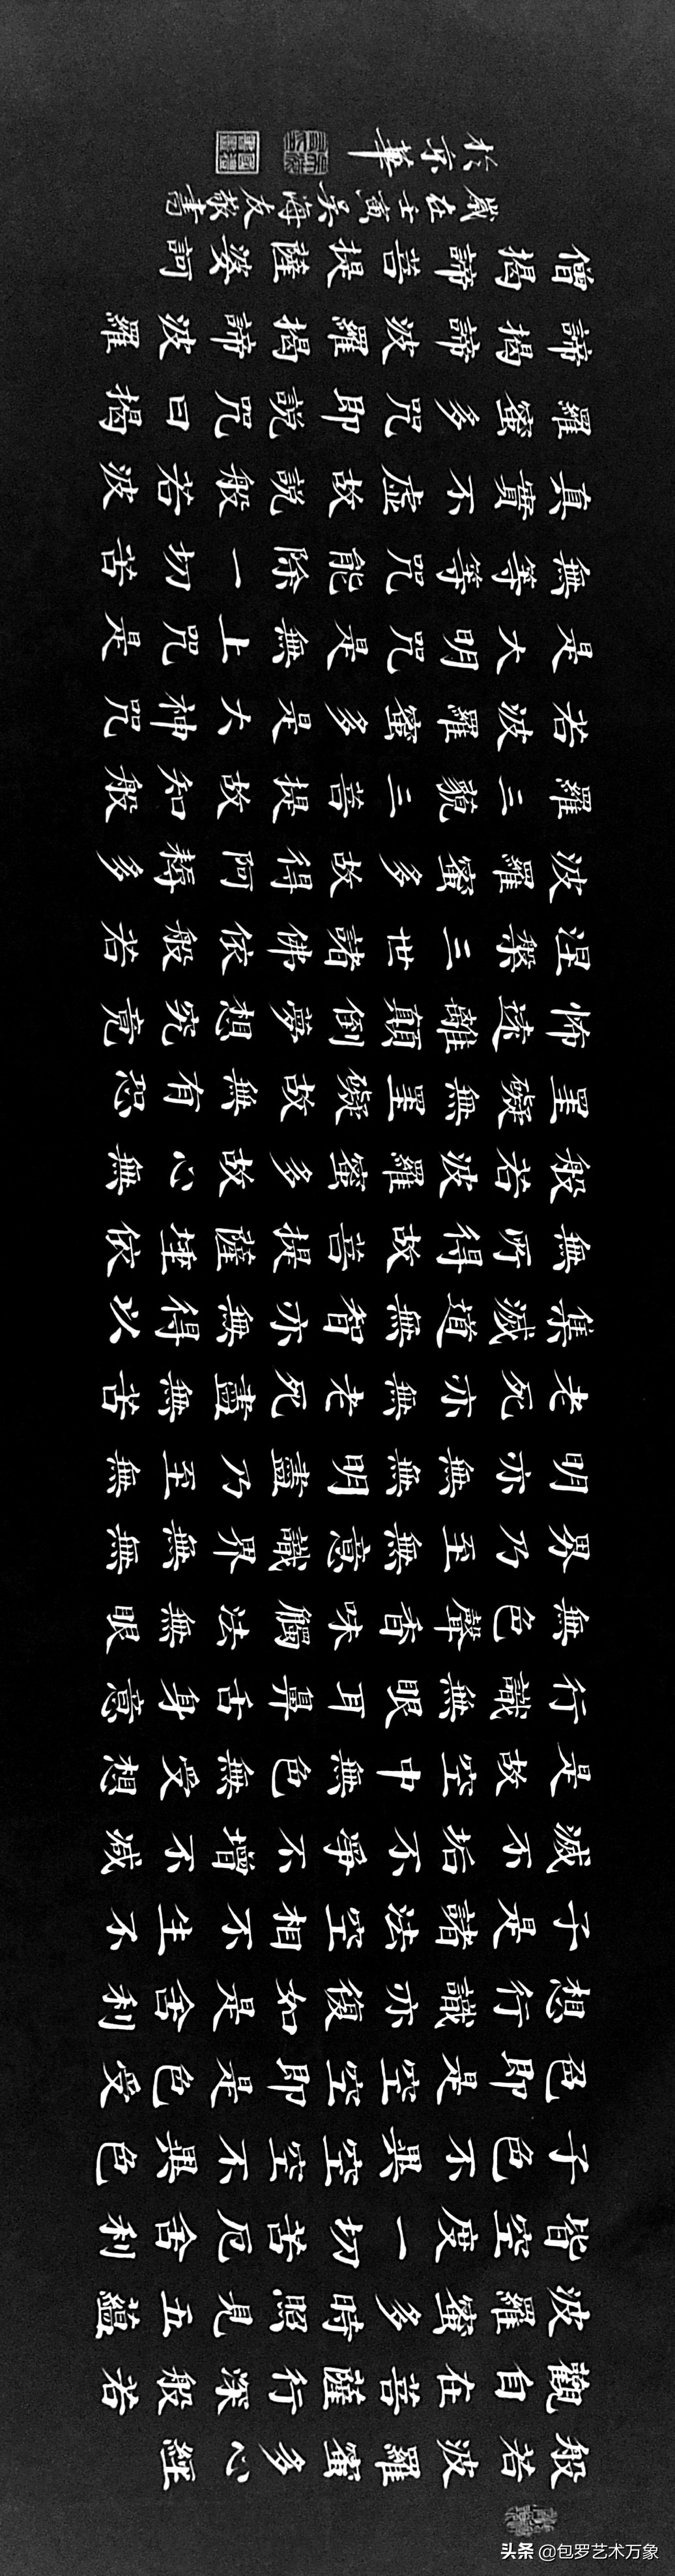 般若波羅蜜多心經
觀自在菩薩行深般若
波羅蜜多時照見五蘊
皆空度一切苦厄舍利
子色不異空空不異色
色即是空空即是色受
想行識亦復如是舍利
子是諸法空相不生不
滅不垢不淨不增不減
是故空中無色無受想
行識無眼耳鼻舌身意
無色聲香味觸法無眼
界乃至無意識界無無
明亦無無明盡乃至無
老死亦無老死盡無苦
集滅道無智亦無得以
無所得故菩提薩埵依
般若波羅蜜多故心無
罣礙無罣礙故無有恐
怖遠離顛倒夢想究竟
涅槃三世諸佛依般若
波羅蜜多故得阿耨多
羅三藐三菩提故知般
若波羅蜜多是大神咒
是大明咒是無上咒是
無等等咒能除一切苦
真實不虛故説般若波
羅蜜多咒即説咒曰揭
諦揭諦波羅揭諦波羅
僧揭諦菩提薩婆訶
歲在壬寅吴海友敬書
於京華
头条 @包罗艺术万象